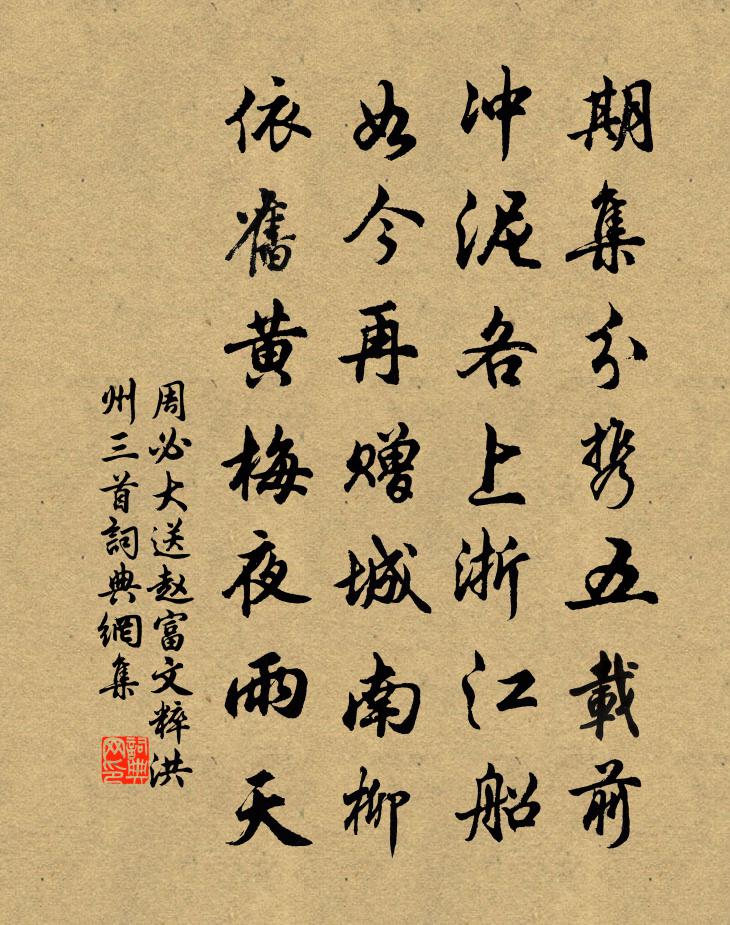 期集分携五載前
冲泥各上浙江船
如今再赠城南柳
依舊黄梅夜雨天
周必大送赵富文粹洪
州三首詞典網集
詞典
网印